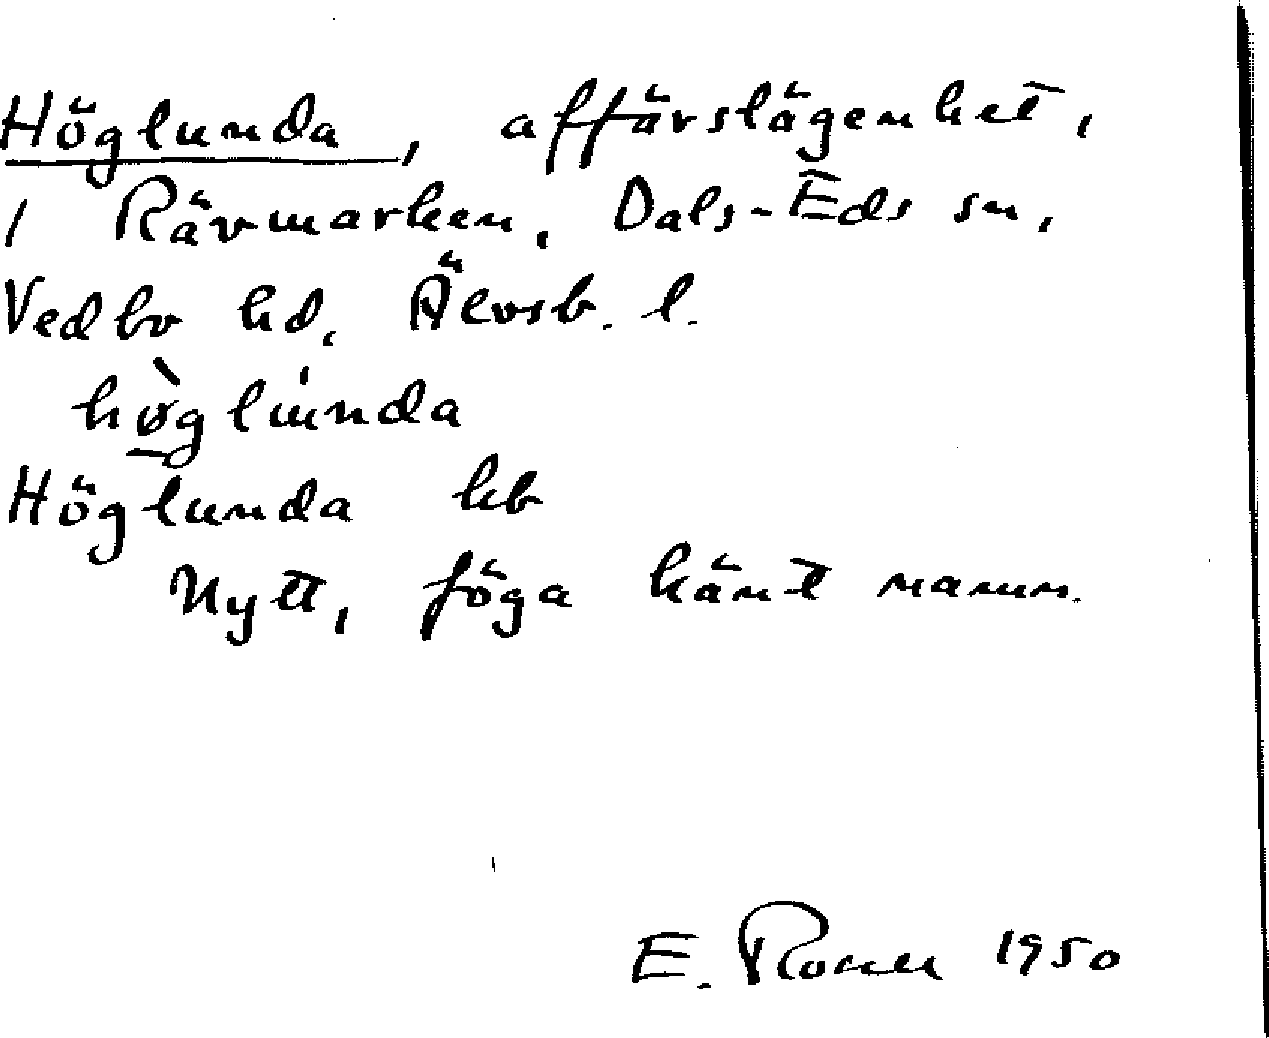 Höglunda, affärslägenhet,
i Rävmarken, Dals-Eds sn,
Vedbo hd, Älvsb. l.
hø̀glúnda
Höglunda kb
Nytt, föga känt namn.
E. 1950